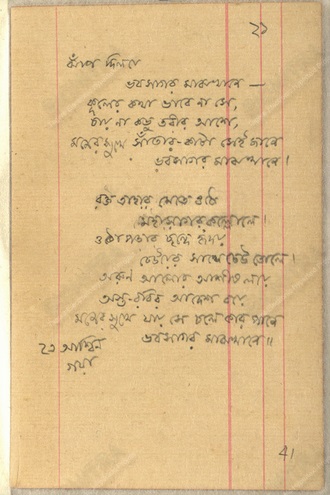 ২১
ঝাঁপ দিল যে
ভবসাগর মাঝখানে —
কূলের কথা ভাবে না সে,
চায় না কভু তরীর আশে,
মনের সুখে সাঁতার-কাটা সেই জানে
ভবসাগর মাঝখানে।
রক্ত তাহার মেতে ওঠে
মহাসাগর কল্লোলে।
ওঠা পড়ার ছন্দে হৃদয়
ঢেউয়ের সাথে ঢেউ তোলে।
অরুণ আলোর আশিস লয়ে
অস্ত-রবির আদেশ বয়ে
মনের সুখে যায় সে চলে কার পানে
ভবসাগর মাঝখানে॥
২৩ আশ্বিন
গয়া
41